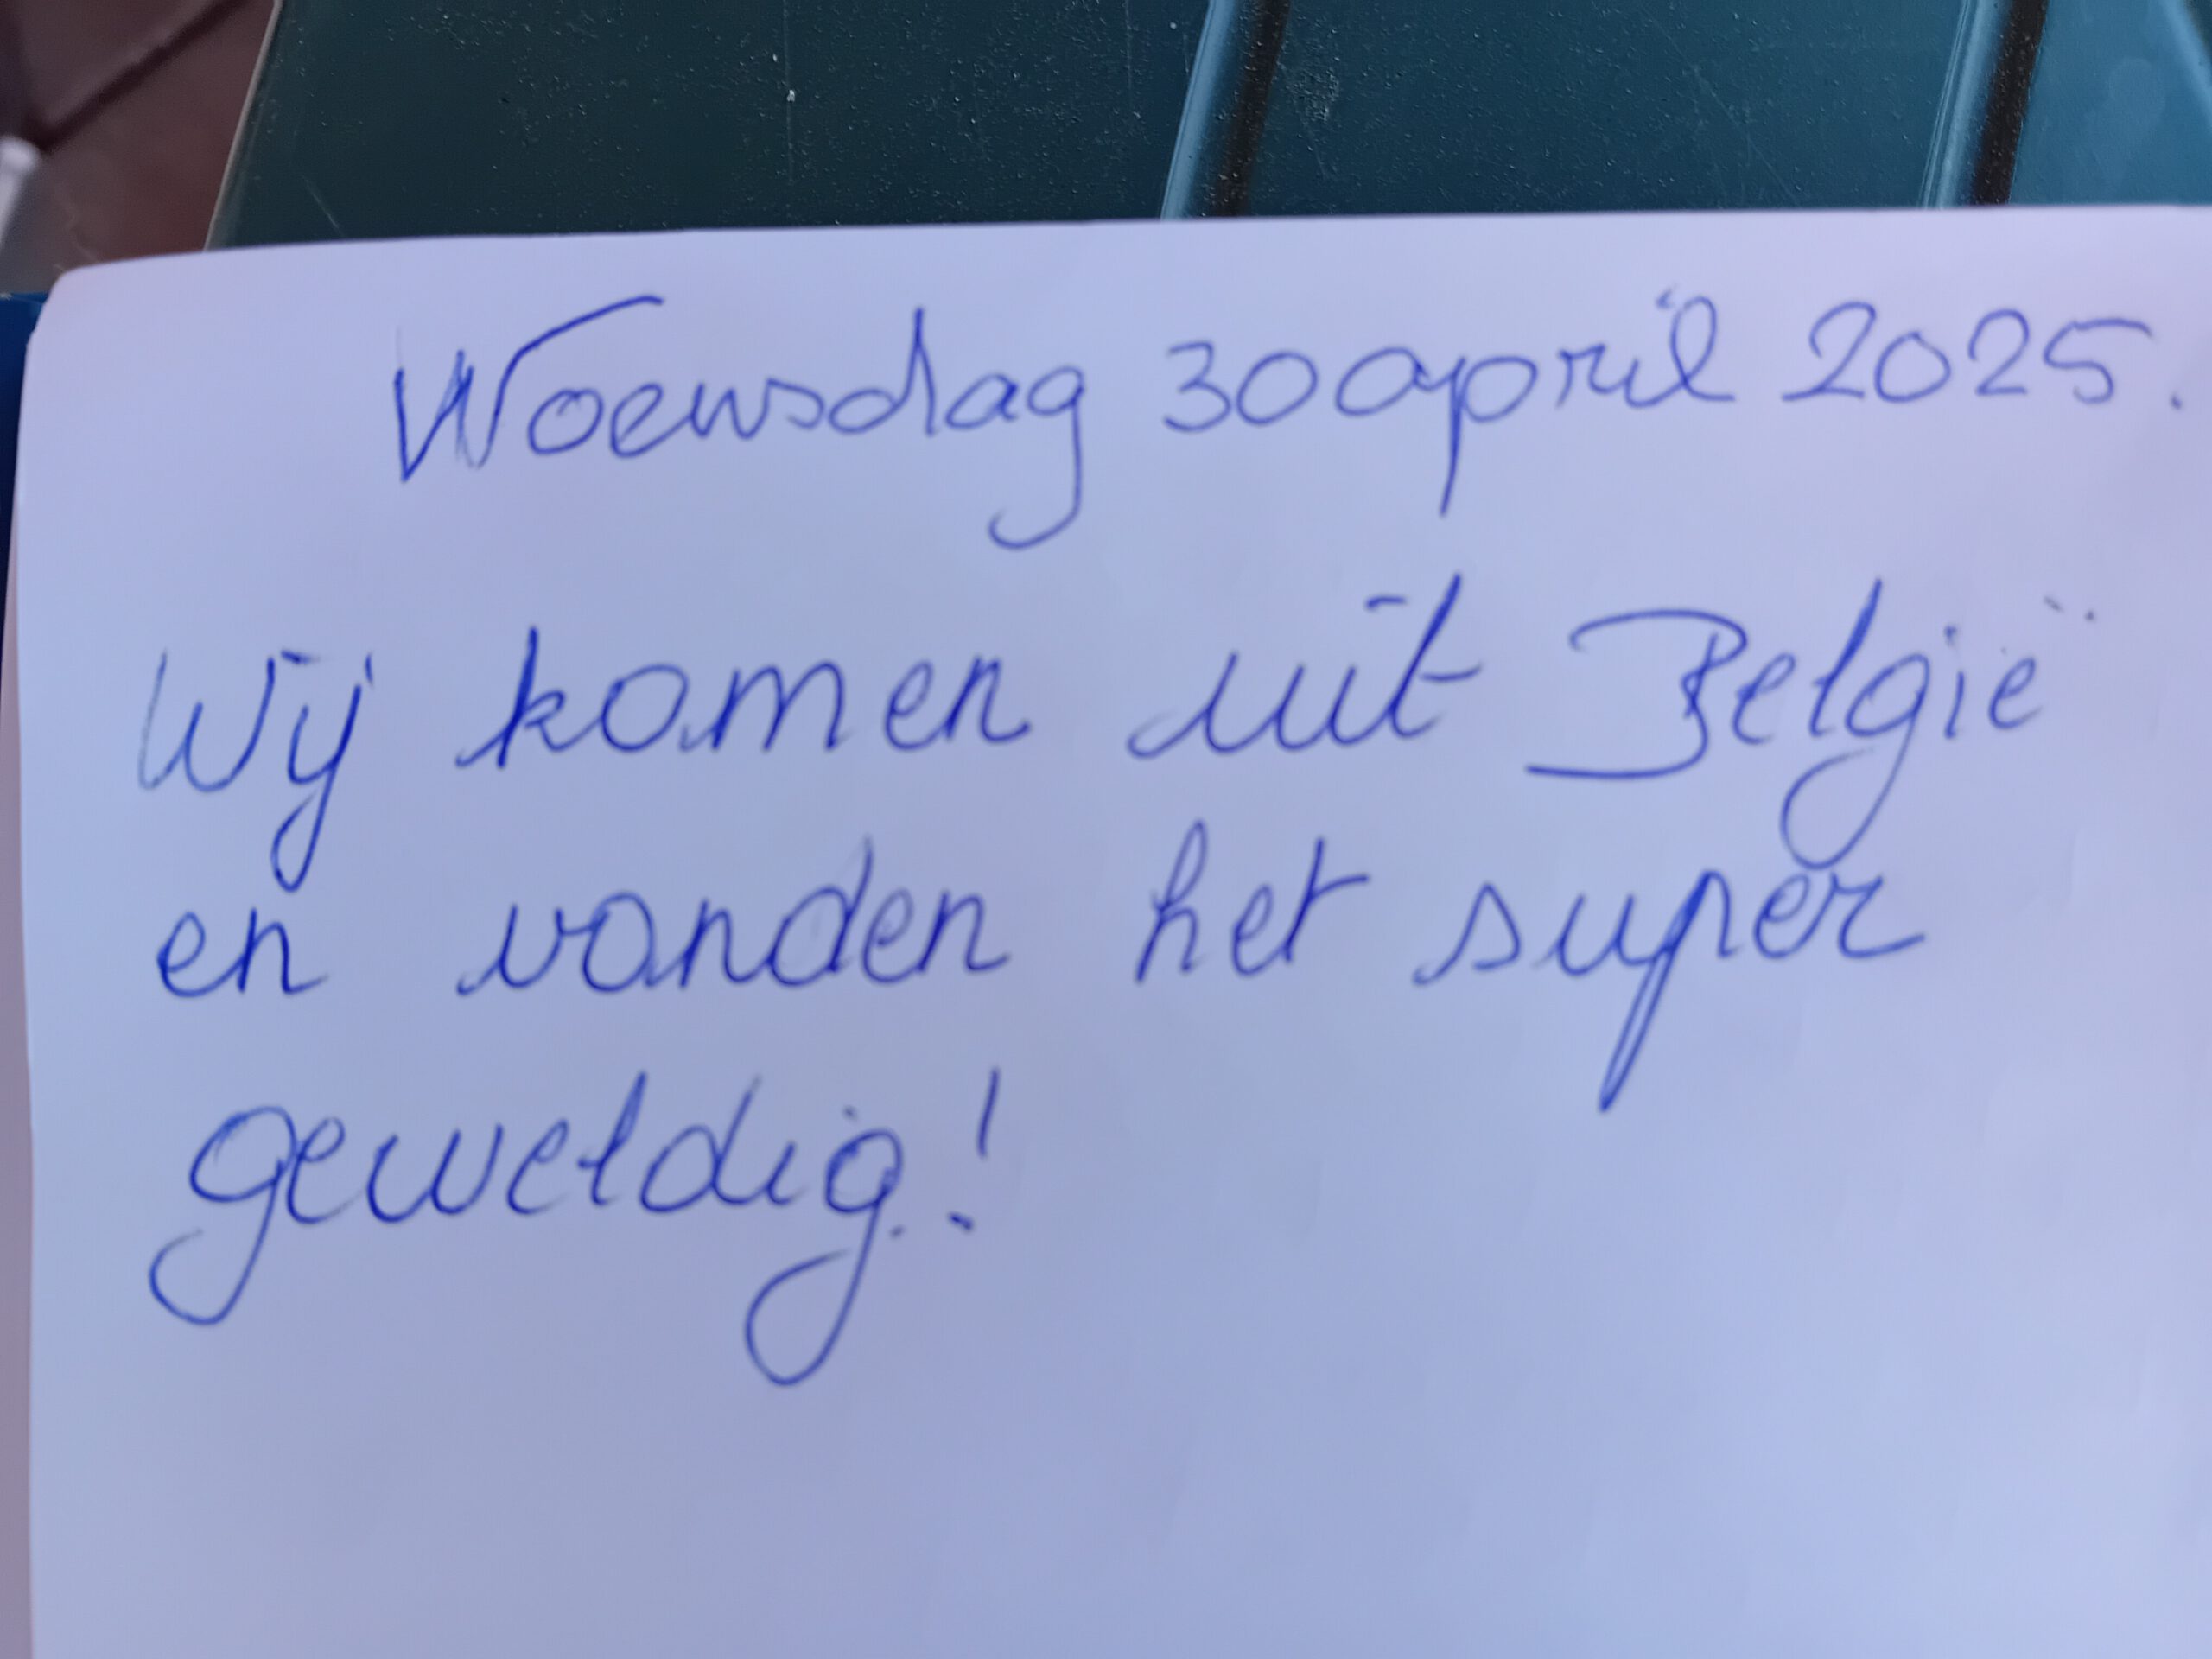 Woensdag 30 april 2025.
Wij komen uit België
en vonden het super
geweldig!